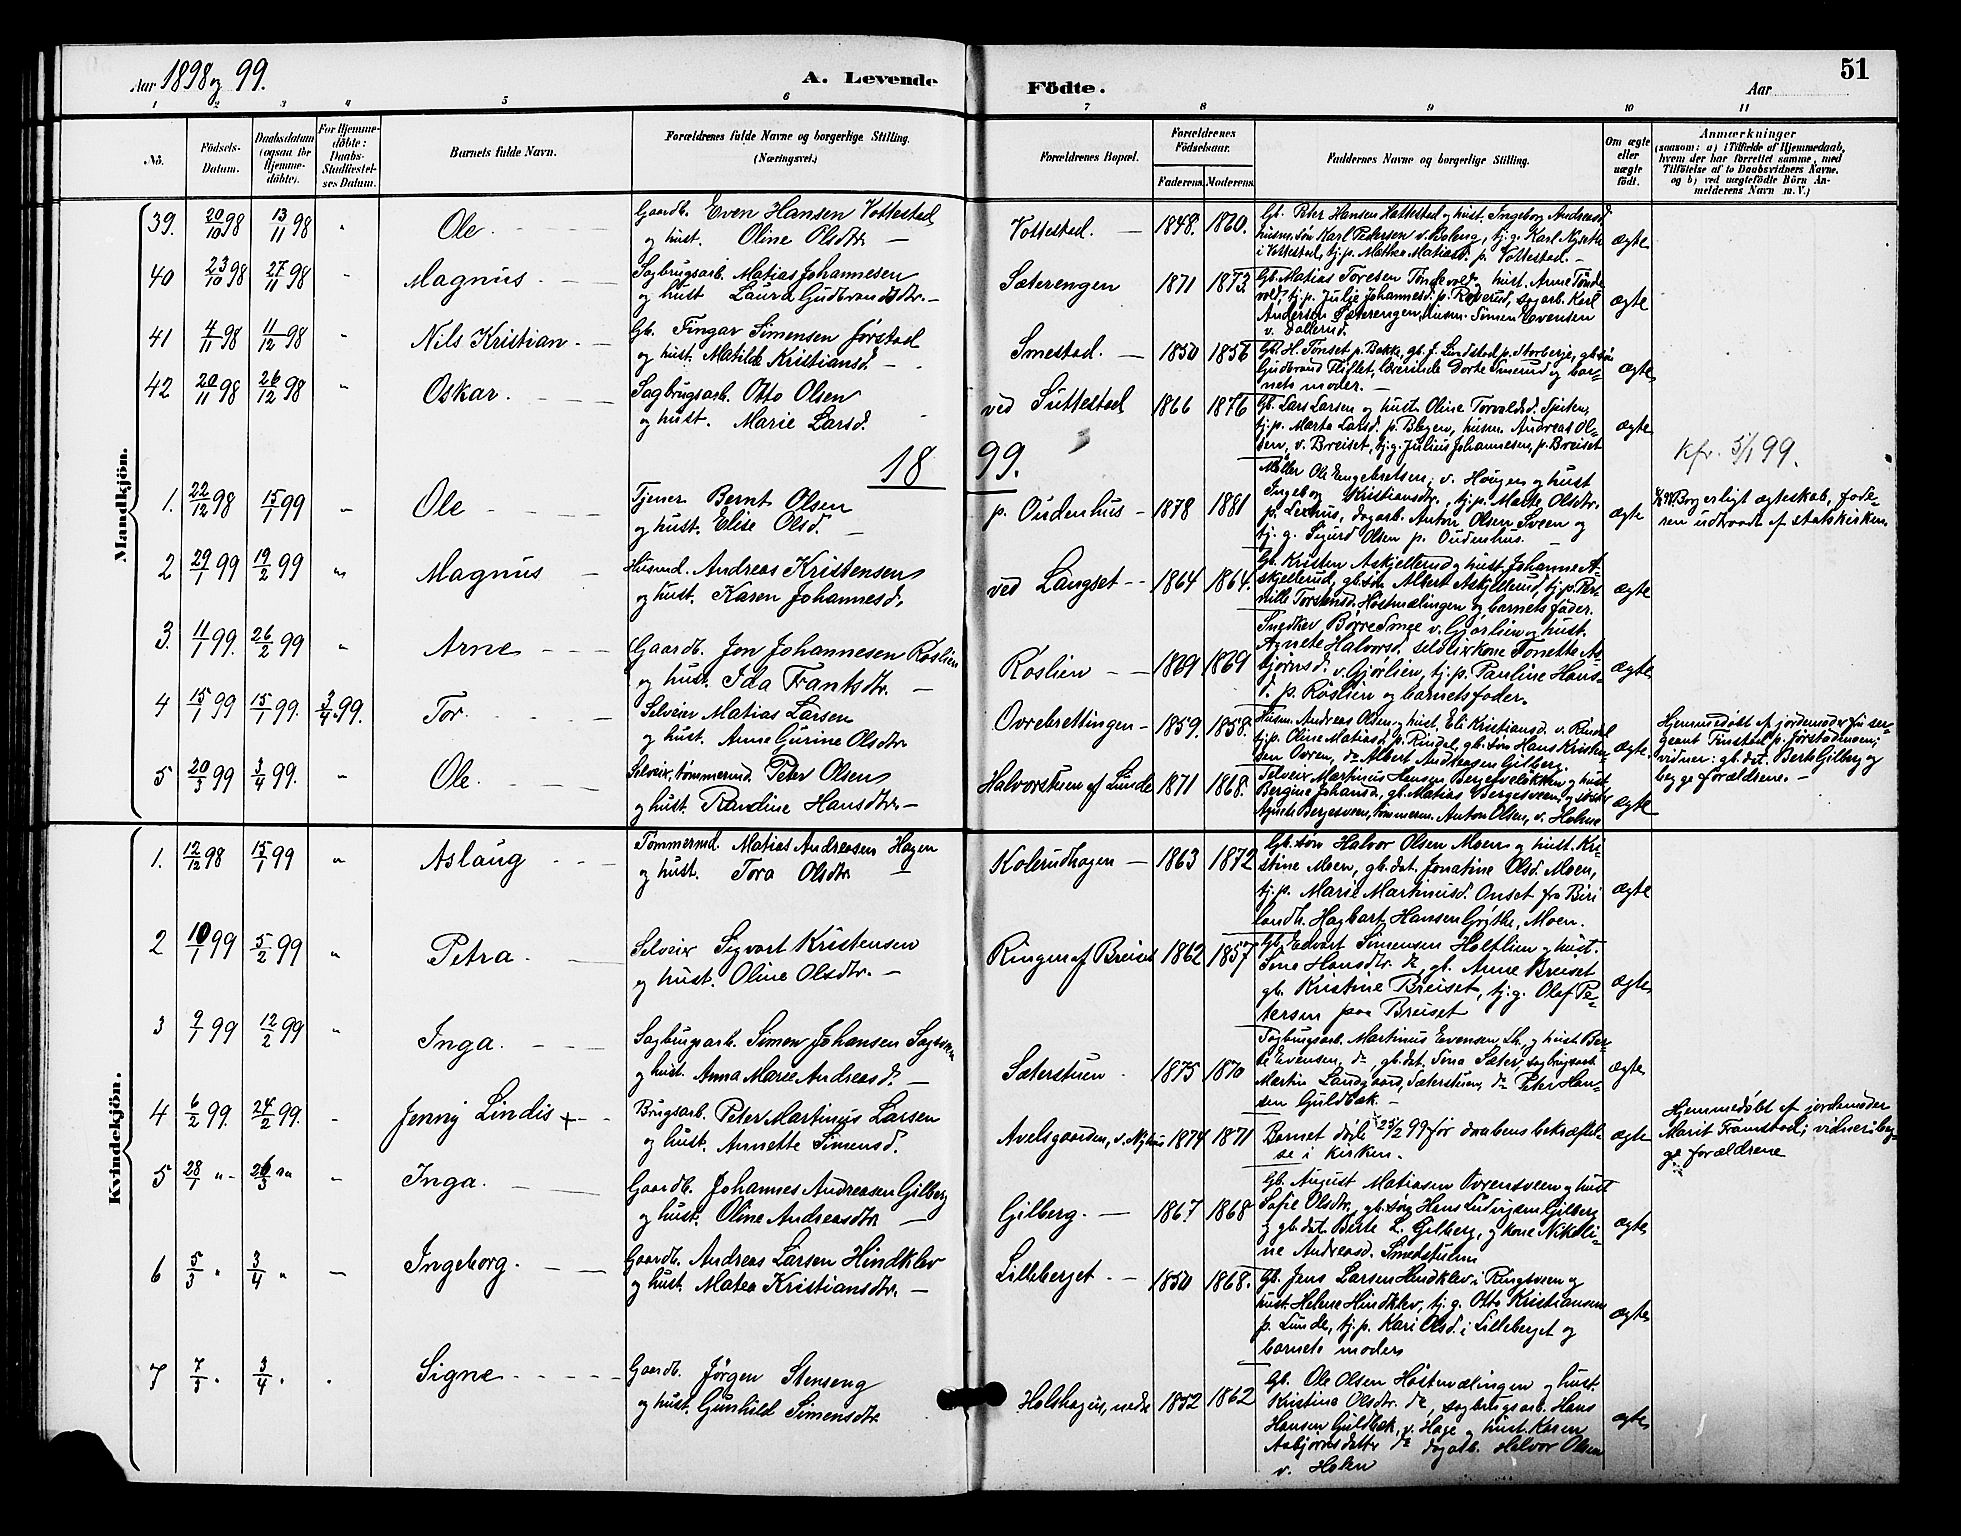 Aar 1898 og 99.
A. Levende
Födte.
Aar
51
1 2 3 4 5 6 7 8 9 10 11
No.
Födsels-
Datum.
Daabsdatum
(ogsaa for
Hjemme-
döbte).
For Hjemme-
döbte:
Daabs-
Stadfæstel-
ses Datum.
Barnets fulde Navn.
Forældrenes fulde Navne og borgerlige Stilling.
(Næringsvei.)
Forældrenes Bopæl.
Forældrenes
Födselsaar.
Faderens. Moderens.
Faddernes Navne og borgerlige Stilling.
Om ægte
eller
uægte
födt.
Anmærkninger
(saasom: a) i Tilfælde af Hjemmedaab,
hvem der har forrettet samme, med
Tilföielse af to Daabsvidners Navne,
og b) ved uægtefödte Börn An-
melderens Navn m. V.)
Mandkjön.
39. 20/10 98 13/11 98 " Ole
Gaardb. Even Hansen Vottestad
og hust. Oline Olsdtr. —
Vottestad. — 1848. 1860.
Gb. Peter Hansen Hattestad og hust. Ingeborg Andreasd.
ægte
40 23/10 98 27/11 98 " Magnus
Sagbrugsarb. Matias Johannesen
og hust Laura Gudbrandsdtr. —
Sæterengen 1871 1873.
Gb. Matias Toresen Tøndevold, hust. Arne Tønde
vold, tj.p. Julie Johannesd. p. Røverud, sagarb. Karl
Andersen Sæterengen, husm. Simen Evensen
v. Dallerud.
ægte
41 4/11 98 11/12 98 " Nils Kristian
Gb. Fingar Simensen Jørstad
og hust. Matilde Kristiansd. —
Smestad. — 1850 1856
Gb. H. Tønset p. Bakke, gb. J. Lundstad p. Storberje, gb.søn
Gudbrand Fliflet, lærerinde Dorte Smerud og bar-
nets moder. —
ægte
42 20/11 98 26/12 98 " Oskar.
Sagbrugsarb. Otto Olsen
og hust. Marie Larsd.
ved Suttestad 1866 1876
Gb. Lars Larsen og hust. Oline Torvaldsd. Spiten,
tj.p. Marte Larsd. p. Bleyen, husm. Andreas Ol-
sen, v. Breiset, tj.g. Julius Johannesen, p. Breiset
ægte
1899.
Kfr. 5/1 99.
1. 22/12 98 15/1 99 " Ole
Tjener Bernt Olsen
og hust. Elise Olsd. —
p. Oudenhus — 1878 1881
Møller Ole Engebretsen, v. Haugen og hust
Ingeborg Kristiansdtr., tj.p. Marte Olsdtr.
p. Lexhus, dagarb. Anton Olsen Sveen og
tj.g. Sigurd Olsen p. Oudenhus. —
ægte
Borgerligt ægteskab, fade-
ren udtraadt af statskirken.
2 29/1 99 19/2 99 " Magnus
Husmd. Andreas Kristensen
og hust. Karen Johannesd.
ved Langset -- 1864 1864.
Gb. Kristen Askjellerud og hust Johanne A-
skjellerud, gb.søn Albert Askjellerud, tj.p. Per-
nille Torstensd. Høstmælingen og barnets fader.
ægte
3. 11/1 99. 26/2 99 " Arne
Gaardb. Jon Johannesen Røslien
og hust. Ida Frantsdtr. —
Røslien -- 1869 1869
Snedker Børre Smee v. Gjørlien og hust.
Agnete Halvorsd. selveirkone Tonette As-
bjørnsd. v. Gjørlien, tj.p. Pauline Hans-
d. p. Røslien og barnets fader.
ægte
4 15/1 99 15/1 99. 3/4 99. Tor
Selveier Matias Larsen
og hust. Anne Gurine Olsdtr.
Ovrebrettingen — 1859. 1858.
Husm. Andreas Olsen og hust. Eli Kristiansd. v. Rindal
tj.p. Oline Matiasd. p. Rindal, gb.søn Hans Kristen-
sen Ovren, do Albert Andreasen Gilberg.
ægte
Hjemmedøbt af jordemoder
geant Finstad p. Jørstadmoen;
vidner: gb.dat. Berte Gilberg og
begge forældrene. —
5 20/3 99 3/4 99. " Ole.
Selveier, tømmermd. Peter Olsen
og hust. Randine Hansdtr. —
Halvorstuen af Lunde 1871 1868.
Selveier Martinus Hansen Bergesveløkken og hust
Bergine Johansd., gb. Matias Bergesveen og søster
Agnete Bergesveen, tømmerm. Anton Olsen, v. Holme
ægte
Kvindekjön.
1. 12/12 98 15/1 99 " Aslaug
Tømmermd. Matias Andreasen Hagen
og hust. Tora Olsdtr. —
Kolerudhagen — 1863 1872
Gb.søn Halvor Olsen Moen og hust. Kri-
stine Moen, gb.dat. Jonatine Olsd. Moen,
tj.p. Marie Martinusd. Onset fra Biri
landh. Hagbart Hansen Grythe, Moen.
ægte
2 10/1 99 5/2 99 " Petra.
Selveier Sigvart Kristensen
og hust. Oline Olsdtr. —
Ringen af Breiset 1862 1857
Gb. Edvart Simensen Holtlien og hust.
Sine Hansdtr. do, gb. Anne Breiset
gb. Kristine Breiset, tj.g. Olaf Pe-
tersen paa Breiset
ægte
3 9/1 99 12/2 99 " Inga.
Sagbrugsarb. Simen Johansen
og hust. Anna Marie Andreasd. —
Sæterstuen. 1875 1870
Sagbrugsarb. Martinus Evensen og hust. Ber-
te Evensen, do, gb.dat. Sina Sæter, sagbrugsarb
Martin Landgaard, Sæterstuen, do Peter Han-
sen Guldbak. —
ægte
4 6/2 99. 24/2 99. " Jenny Lindis +
Brugsarb. Peter Martinus Larsen
og hust. Annette Simensd.
Avelsgaarden, v. 1874 1871
Barnet døde 25/2 99 før daabens bekræftel-
se i kirken.
ægte
Hjemmedøbt af jordemoder
Marit Framstad; vidner: beg-
ge forældrene
5 28/1 " 26/3 " " Inga.
Gaardb. Johannes Andreasen Gilberg
og hust. Oline Andreasdtr. —
Gilberg. — 1867. 1868
Gb. August Matiasen Ovrensveen og hust
Sofie Olsdtr., gb.søn Hans Ludvigsen Gilberg
og gb.dat. Berte L. Gilberg, og kone Nikoli-
ne Andreasd. Smedstuen
ægte
6 5/3 " 3/4 " — Ingeborg.
Gaardb. Andreas Larsen Hindklev
og hust. Matea Kristiansdtr. —
Lilleberget. — 1850 1868.
Gb. Jens Larsen Hindklev i Ringsveen og
hust. Helene Hindklev, tj.g. Otto Kristiansen
p. Lunde, tj.p. Kari Olsd. i Lilleberget og
barnets moder
ægte
7 7/3 " 3/4 " . Signe
Gaardb. Jørgen Stenseng
og hust. Gunhild Simensdtr.
Holshagen, nedre 1852 1862
Gb. Ole Olsen Høstmælingen og hust.
Kristine Olsdtr. do, sagbrugsarb. Hans
Hansen Guldbak, v. Hage og hust. Karen
Asbjørnsdatter do dagarb. Halvor Olsen
v. Holen
ægte